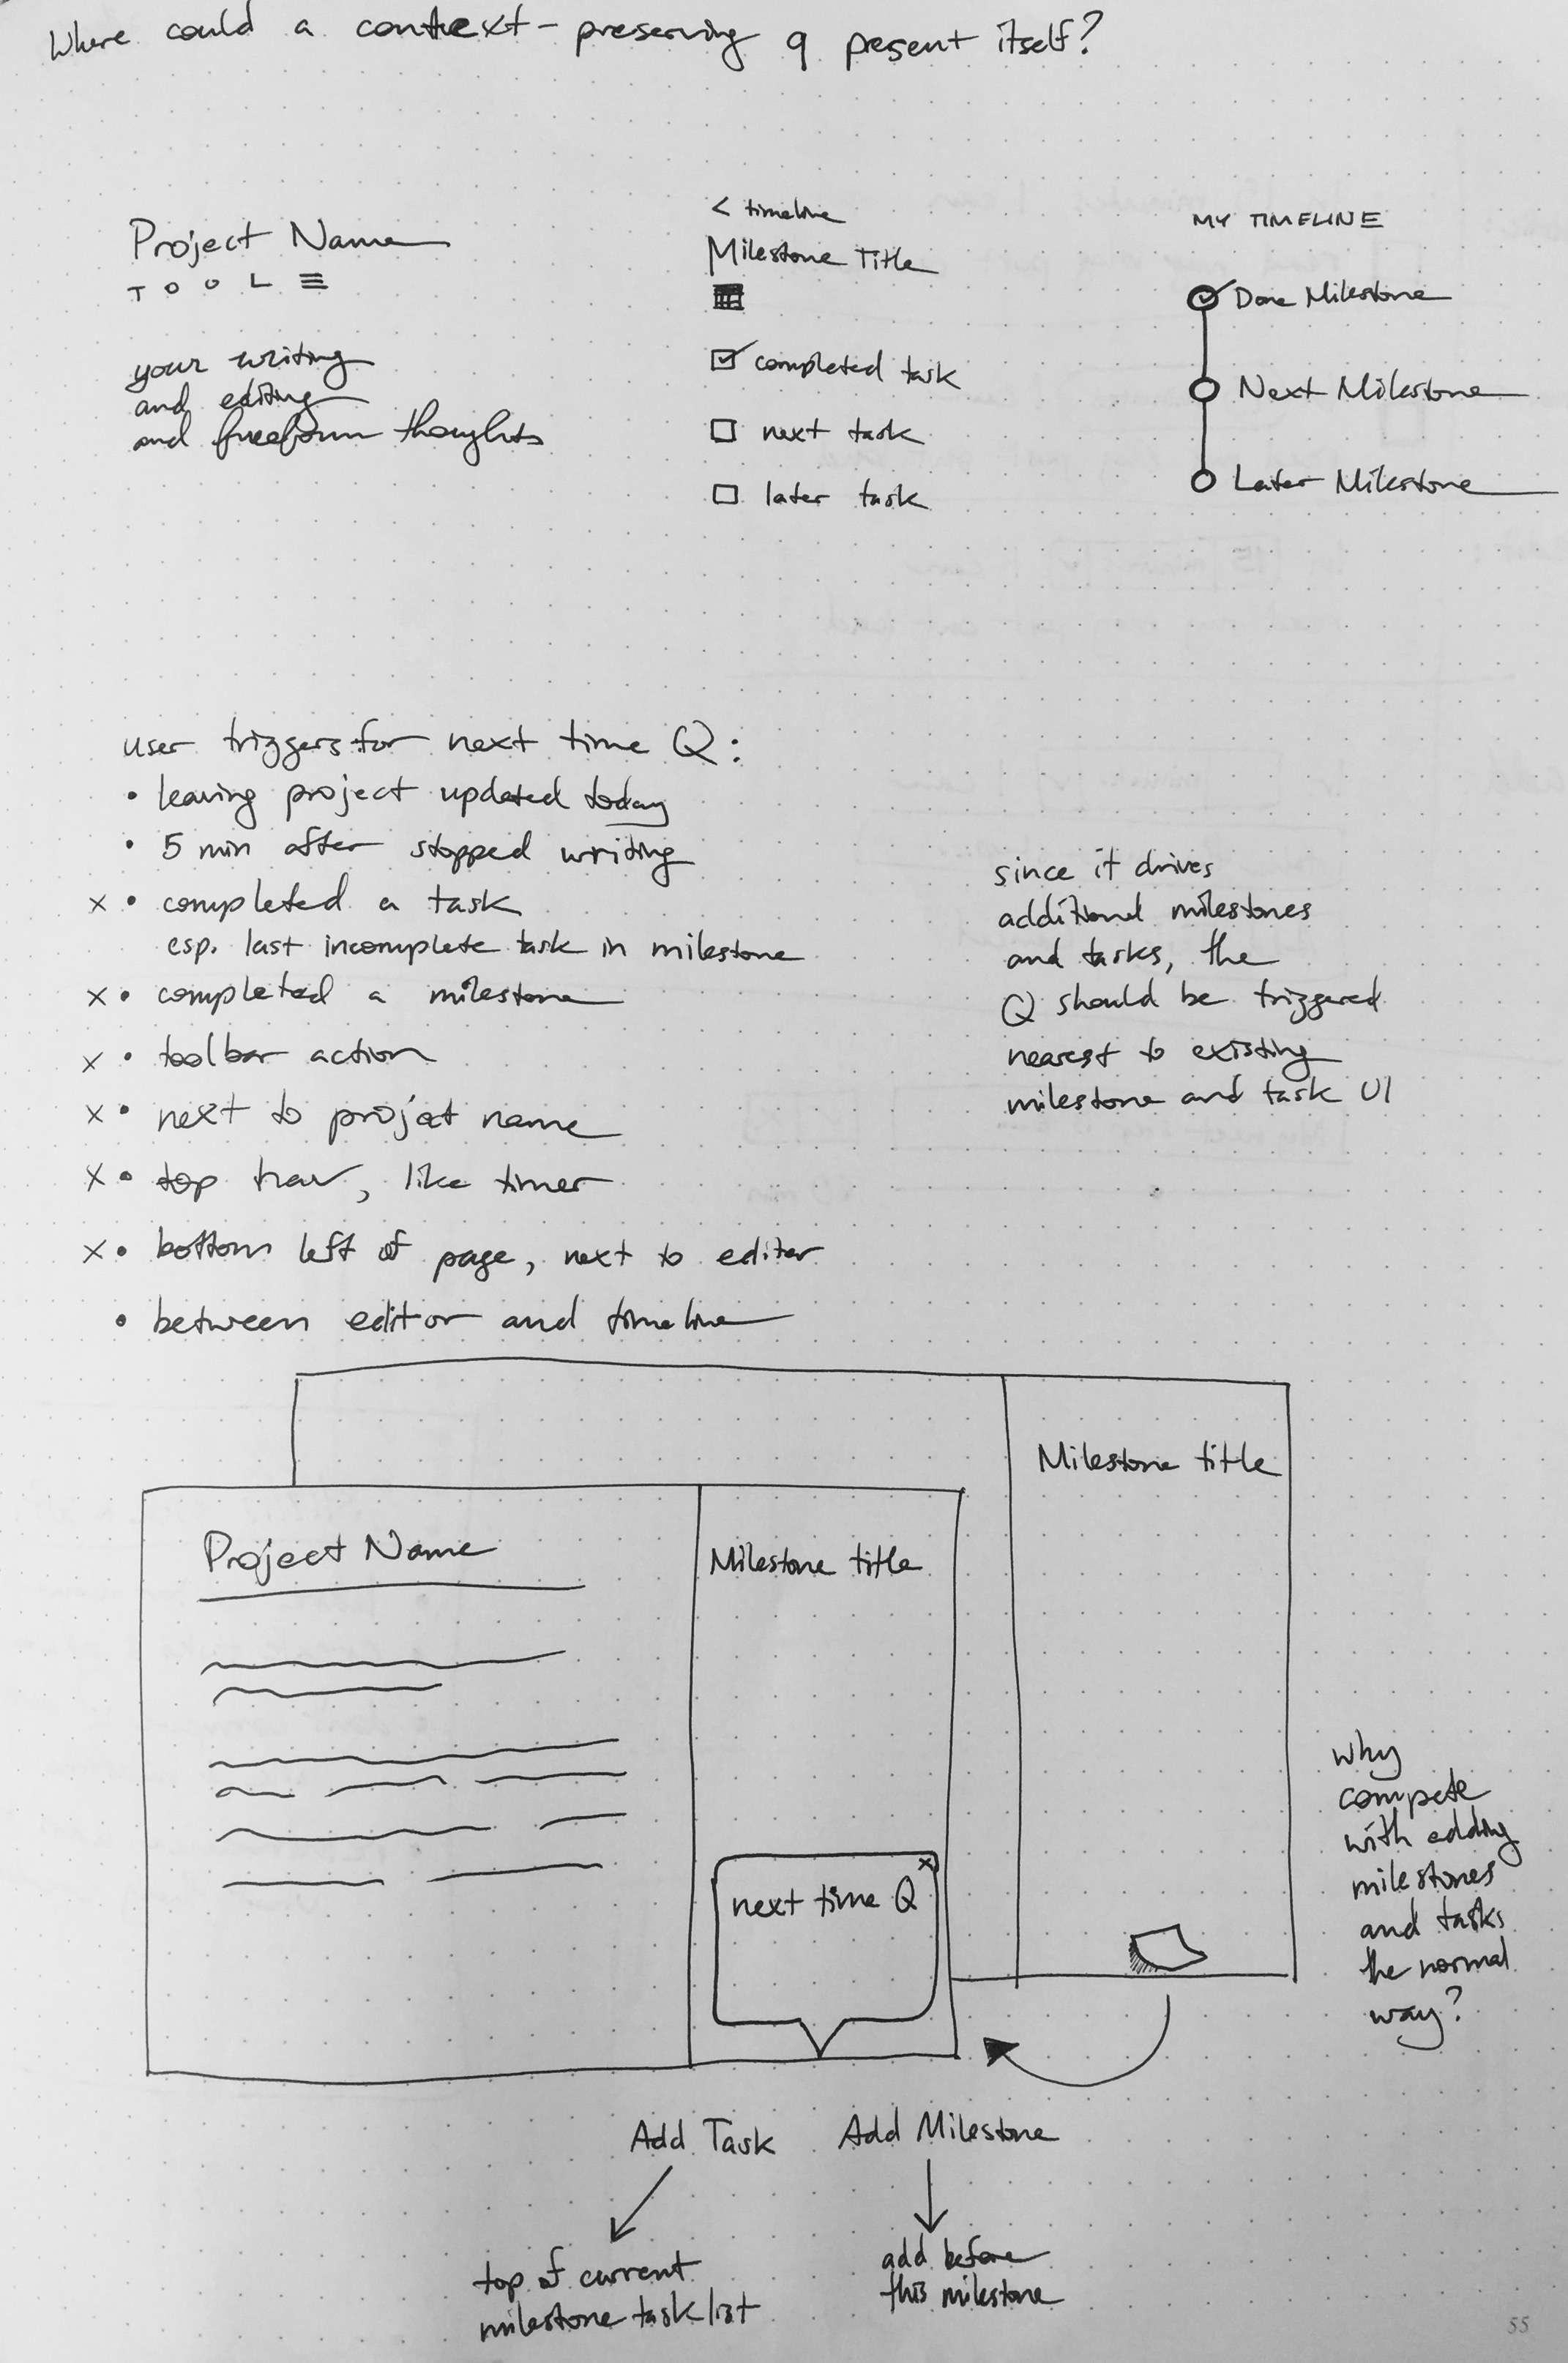 Where could a context-preserving q present itself?
Project Name
TOOL
your writing
and editing
and freeform thoughts
< timeline
Milestone Title
completed task
next task
later task
MY TIMELINE
Done Milestone
Next Milestone
Later Milestone
user triggers for next time Q:
• leaving project updated today
• 5 min after stopped writing
x • completed a task
esp. last incomplete task in milestone
x • completed a milestone
x • toolbar action
x • next to project name
x • top nav, like timer
x • bottom left of page, next to editor
• between editor and timeline
since it drives
additional milestones
and tasks, the
Q should be triggered
nearest to existing
milestone and task UI
Milestone title
Project Name
Milestone title
x
next time Q
why
compete
with adding
milestones
and tasks
the normal
way?
Add Task
Add Milestone
top of current
milestone task list
add before
this milestone
55